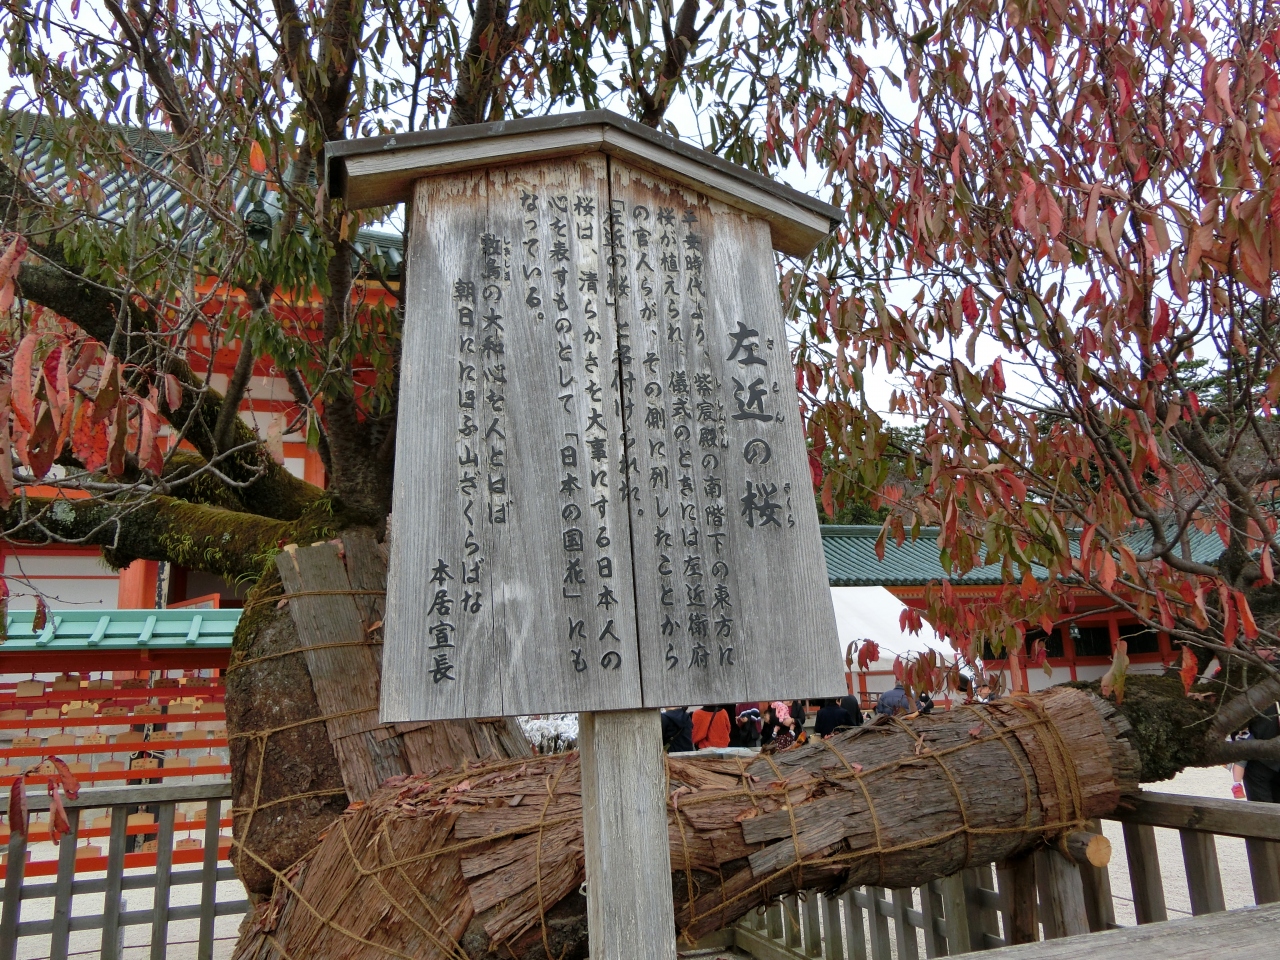 左近の桜
さこんのさくら
平安時代より、紫宸殿の南階下の東方に
ししんでん
桜が植えられ、儀式のときには左近衛府
の官人らが、その側に列したことから
「左近の桜」と名付けられた。
桜は、清らかさを大事にする日本人の
心を表すものとして「日本の国花」にも
なっている。
敷島の大和心を人とはば
しきしま
朝日ににほふ山ざくらばな
本居宣長